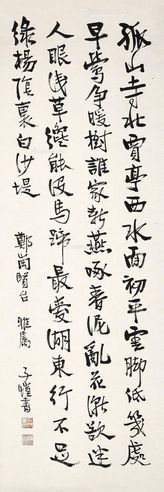 孤山寺北賈亭西水面初平雲脚低幾處
早鶯争暖樹誰家新燕啄春泥亂花漸欲迷
人眼淺草纔能沒馬蹄最愛湖東行不足
綠楊陰裏白沙堤
鄭崗賢台 雅屬
子愷書